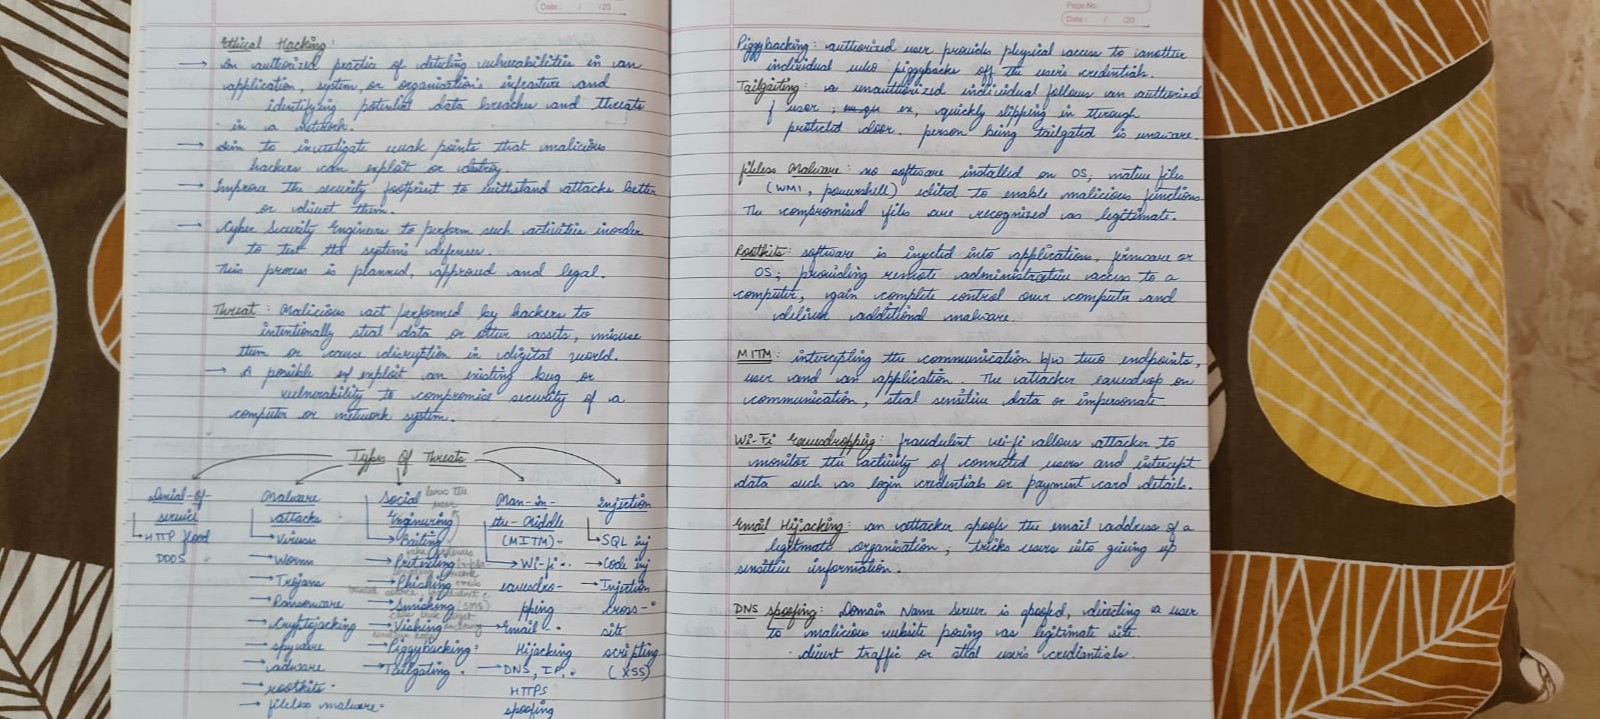 Date: / /20
Ethical Hacking:
→ An authorized practice of detecting vulnerabilities in an
application, system, or organisation's infrasture and
identifying potential data breaches and threats
in a network.
→ Aim to investigate weak points that malicious
hackers can exploit or destroy.
→ Improve the security footprint to withstand attacks better
or divert them.
→ Cyber Security Engineers to perform such activities inorder
to test the systems defenses.
This process is planned, approved and legal.
Threat: Malicious act performed by hackers to
intentionally steal data or other assets, misuse
them or cause disruption in digital world.
→ A possible exploit an existing bug or
vulnerability to compromise security of a
computer or network system.
Types Of Threats
Denial-of-
service
HTTP flood
DDOS
Malware
attacks
→ Viruses
→ Worms
→ Trojans
→ Ransomware
→ Cryptojacking
→ spyware
→ adware
→ rootkits
→ fileless malware
Social
Engineering
→ Baiting
→ Pretexting
→ Phishing
→ Smishing (SMS)
→ Vishing
→ Piggybacking
→ Tailgating
Man-in-
the-Middle
(MITM)-
→ Wi-fi
eavesdro-
pping
→ Email
Hijacking
→ DNS, IP,
HTTPS
spoofing
Injection
→ SQL inj
→ Code inj
→ Injection
Cross-
site
scripting
(XSS)
Page No:
Date: / /20
Piggybacking: authorized user provides physical access to another
individual who piggybacks off the user's credentials.
Tailgaiting: a unauthorized individual follows an authorized
user; ex, quickly slipping in through
protected door. person being tailgated is unaware.
fileless Malware: no software installed on OS; native files
(WMI, powershell) edited to enable malicious functions.
The compromised files are recognized as legitimate.
Rootkits: software is injected into applications, firmware or
OS; providing remote administrative access to a
computer, gain complete control over computer and
deliver additional malware.
MITM: intercepting the communication b/w two endpoints,
user and an application. The attacker eavesdrop on
communication, steal sensitive data or impersonate
Wi-Fi Eavesdropping: fraudulent wi-fi allows attacker to
monitor the activity of connected users and intercept
data such as login credentials or payment card details.
Email Hijacking: an attacker spoofs the email address of a
legitimate organisation; tricks users into giving up
sensitive information.
DNS spoofing: Domain Name server is spoofed, directing a user
to malicious website posing as legitimate site.
divert traffic or steal user's credientials.